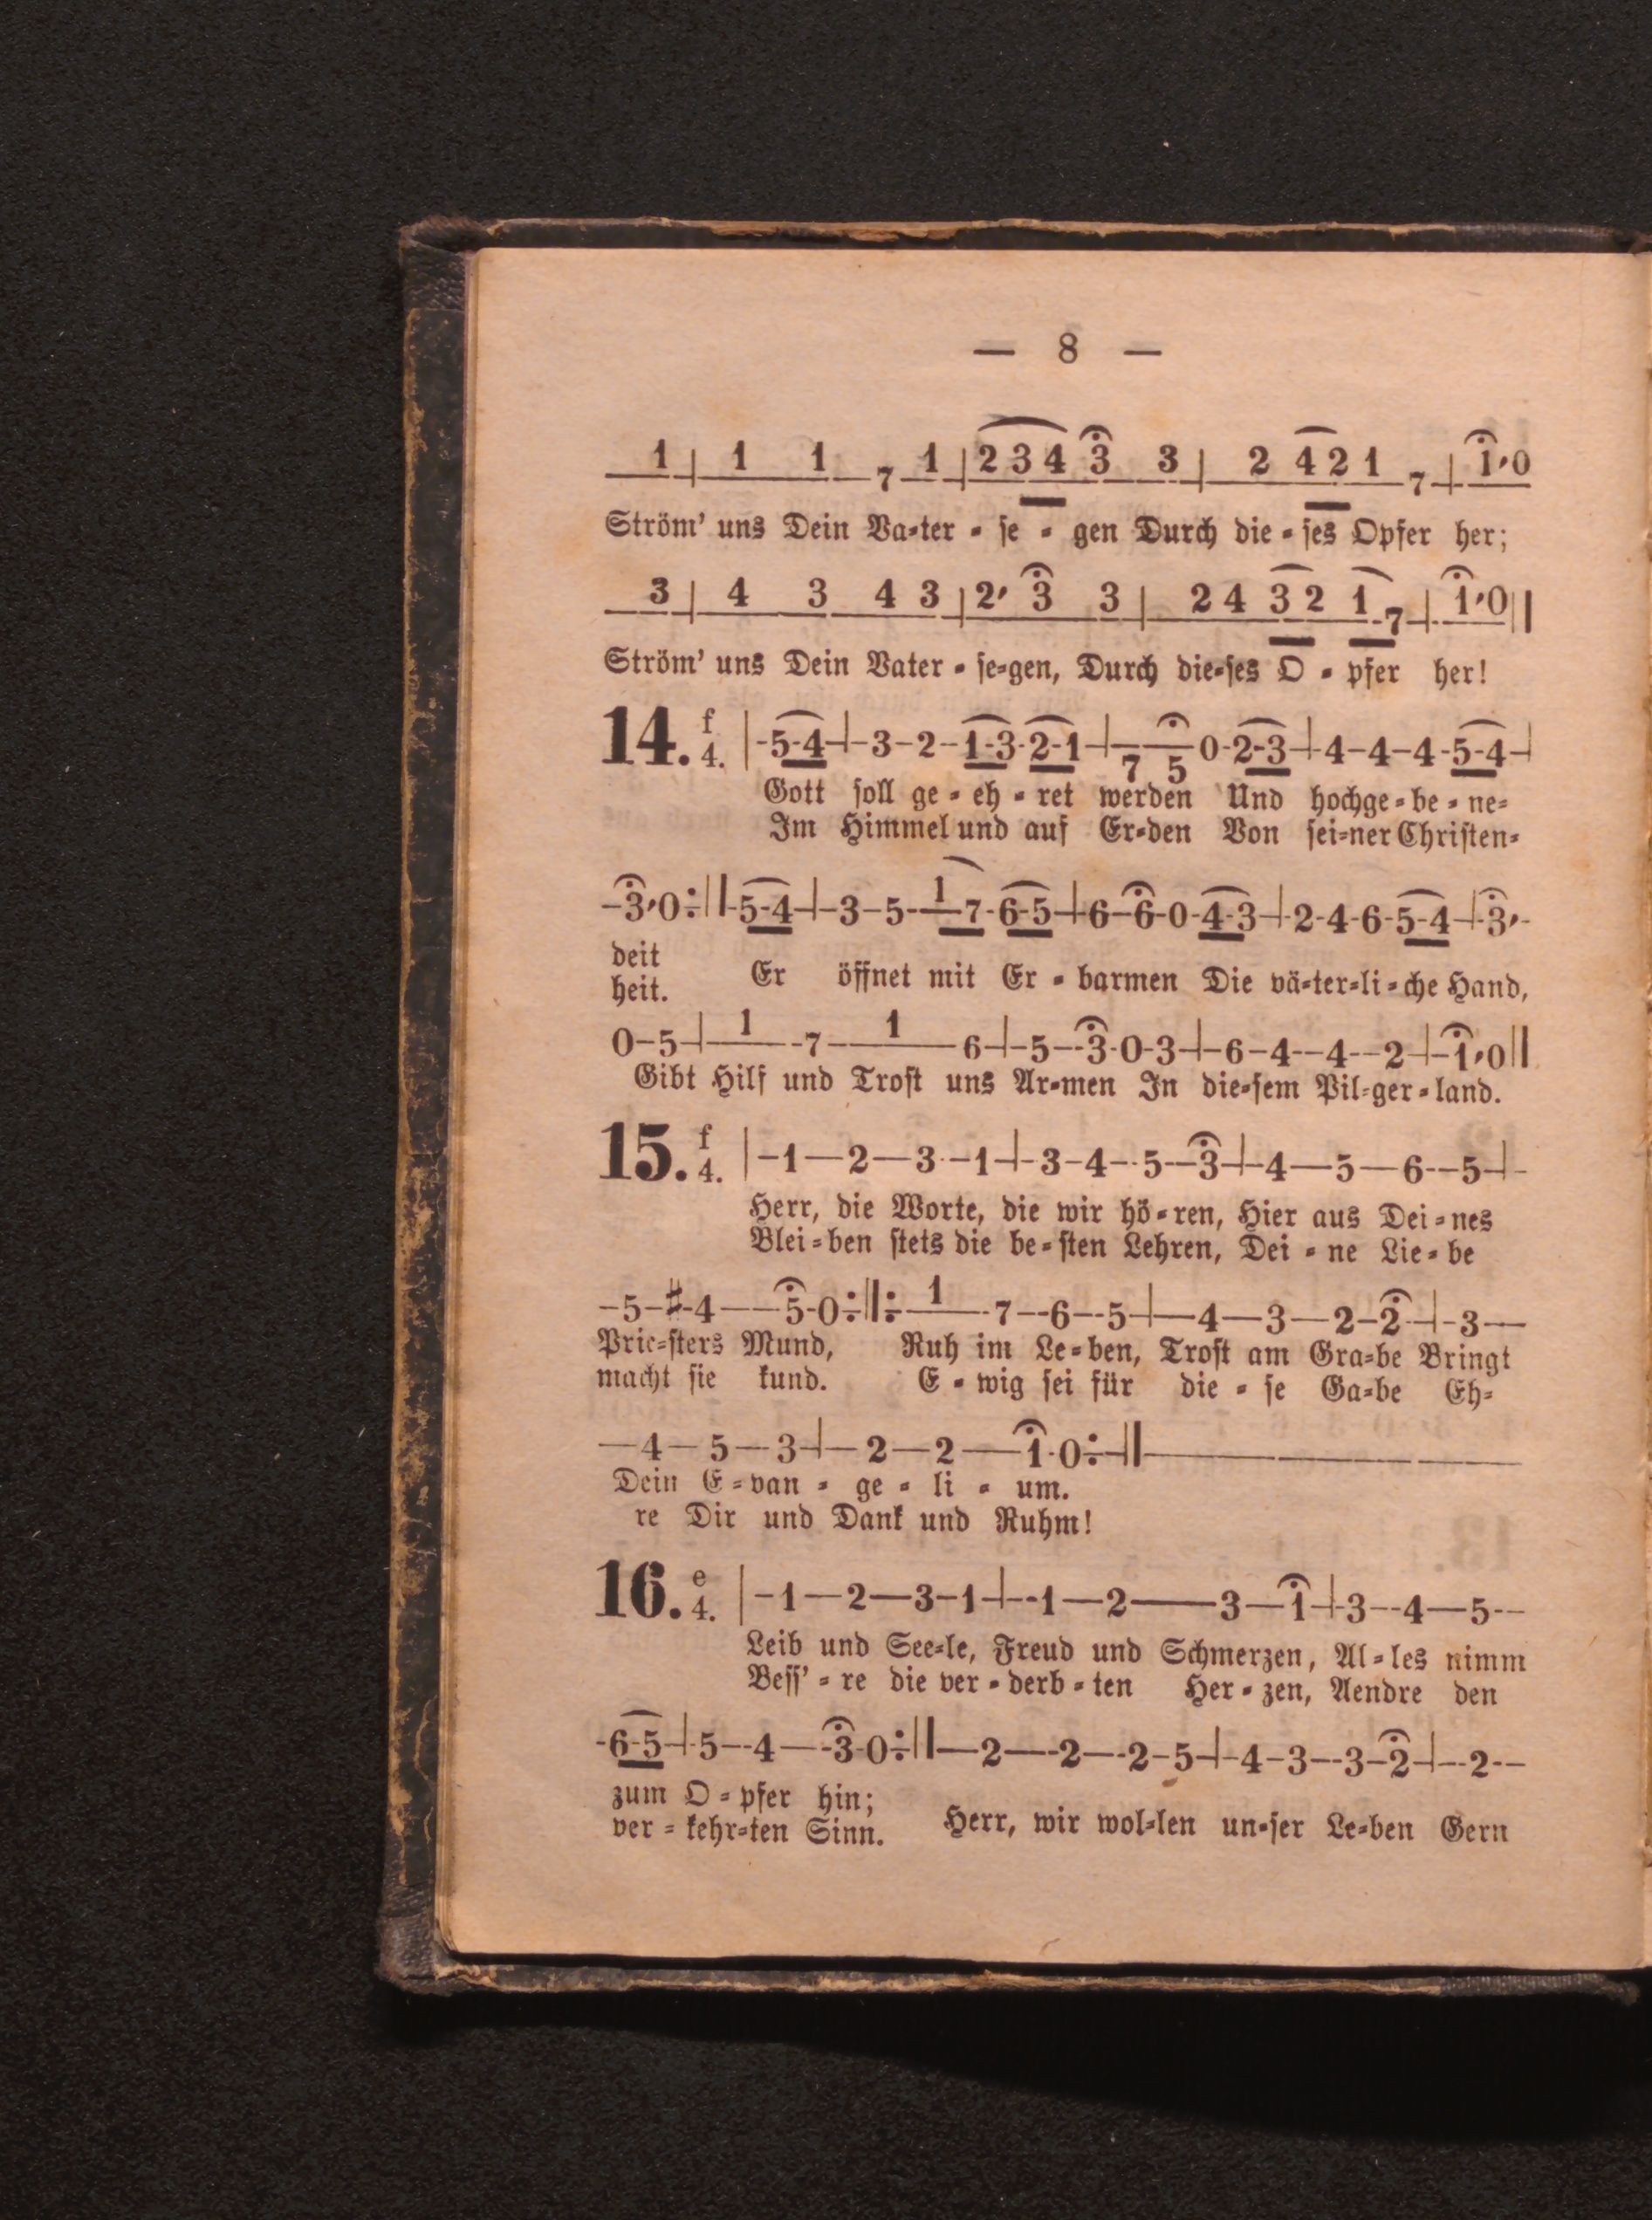 — 8 —
1 | 1 1 7 1 | 2 3 4 3 3 | 2 4 2 1 7 | 1' 0
Ström' uns Dein Va=ter = se = gen Durch die = ses Opfer her;
3 | 4 3 4 3 | 2' 3 3 | 2 4 3 2 1 7 | 1' 0 ||
Ström' uns Dein Vater = se=gen, Durch die=ses O = pfer her!
14. f 4. | 5-4 | 3-2-1-3-2-1 | 7 5 0-2-3 | 4-4-4-5-4 |
Gott soll ge = eh = ret werden Und hochge = be = ne=
Im Himmel und auf Er=den Von sei=ner Christen=
3' 0 :|| 5-4 | 3-5-1 7-6-5 | 6-6-0-4-3 | 2-4-6-5-4 | 3'
deit
heit. Er öffnet mit Er = barmen Die vä=ter=li=che Hand,
0-5 | 1 7 1 6 | 5-3-0-3 | 6-4-4-2 | 1' 0 ||
Gibt Hilf und Trost uns Ar=men In die=sem Pil=ger=land.
15. f 4. | 1-2-3-1 | 3-4-5-3 | 4-5-6-5 |
Herr, die Worte, die wir hö=ren, Hier aus Dei=nes
Blei=ben stets die be=sten Lehren, Dei = ne Lie=be
5-♯4-5-0 :||: 1 7-6-5 | 4-3-2-2 | 3
Prie=sters Mund, Ruh im Le=ben, Trost am Gra=be Bringt
macht sie kund. E = wig sei für die = se Ga=be Eh=
4-5-3 | 2-2-1-0 :||
Dein E=van = ge = li = um.
re Dir und Dank und Ruhm!
16. e 4. | 1-2-3-1 | 1-2-3-1 | 3-4-5
Leib und See=le, Freud und Schmerzen, Al=les nimm
Bess' = re die ver = derb = ten Her = zen, Aendre den
6-5 | 5-4-3-0 :|| 2-2-2-5 | 4-3-3-2 | 2
zum O = pfer hin;
ver = kehr=ten Sinn. Herr, wir wol=len un=ser Le=ben Gern